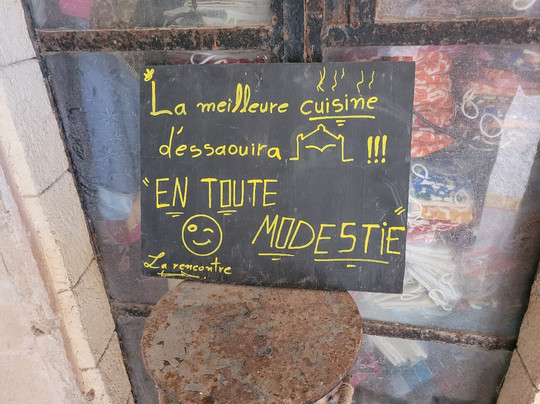 La meilleure cuisine
d'éssaouira !!!
"EN TOUTE
MODESTIE"
La rencontre